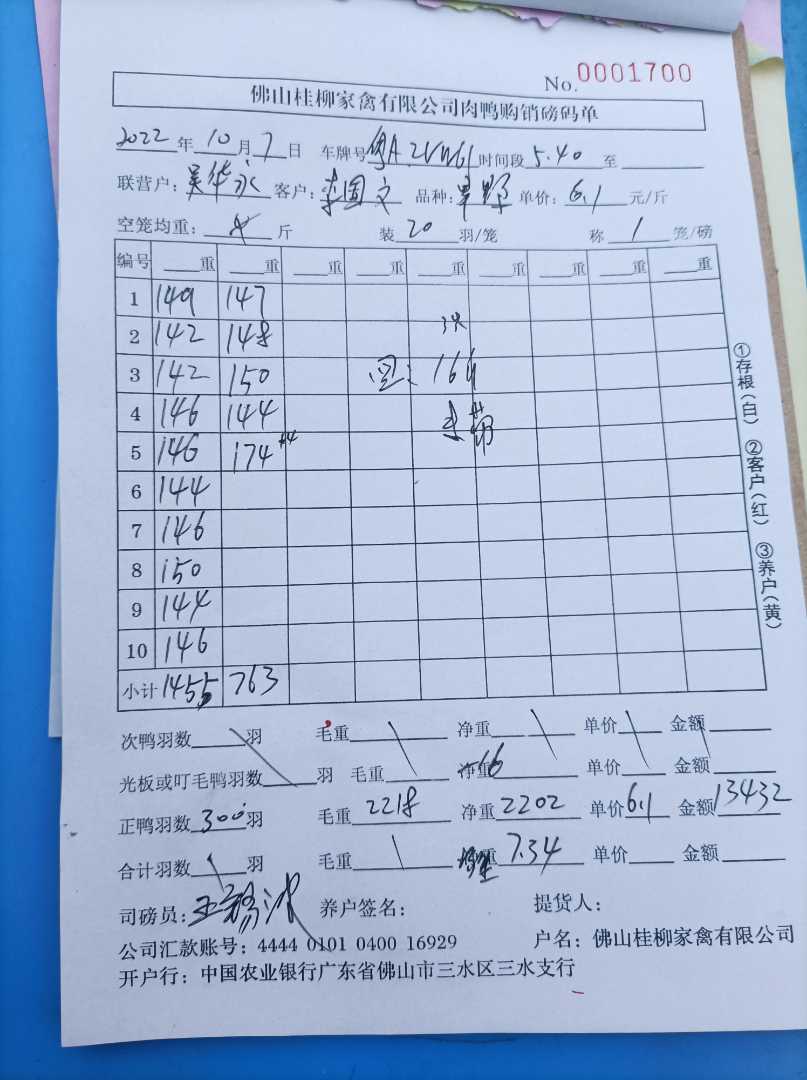 No. 0001700
佛山桂柳家禽有限公司肉鸭购销磅码单
2022 年 10 月 7 日 车牌号 时间段 5.40 至
联营户: 吴华永 客户: 李国文 品种: 草野 单价: 6.1 元/斤
空笼均重: 斤 装 20 羽/笼 称 1 笼/磅
编号 重 重 重 重 重 重 重 重 重
1 149 147
2 142 148
3 142 150
4 146 144
5 146 174
6 144
7 146
8 150
9 144
10 146
小计 1455 763
①存根(白) ②客户(红) ③养户(黄)
次鸭羽数 羽 毛重 净重 单价 金额
光板或叮毛鸭羽数 羽 毛重 净重 单价 金额
正鸭羽数 300 羽 毛重 2218 净重 2202 单价 6.1 金额 13432
合计羽数 羽 毛重 重 7.34 单价 金额
司磅员: 养户签名: 提货人:
公司汇款账号: 4444 0101 0400 16929 户名: 佛山桂柳家禽有限公司
开户行: 中国农业银行广东省佛山市三水区三水支行